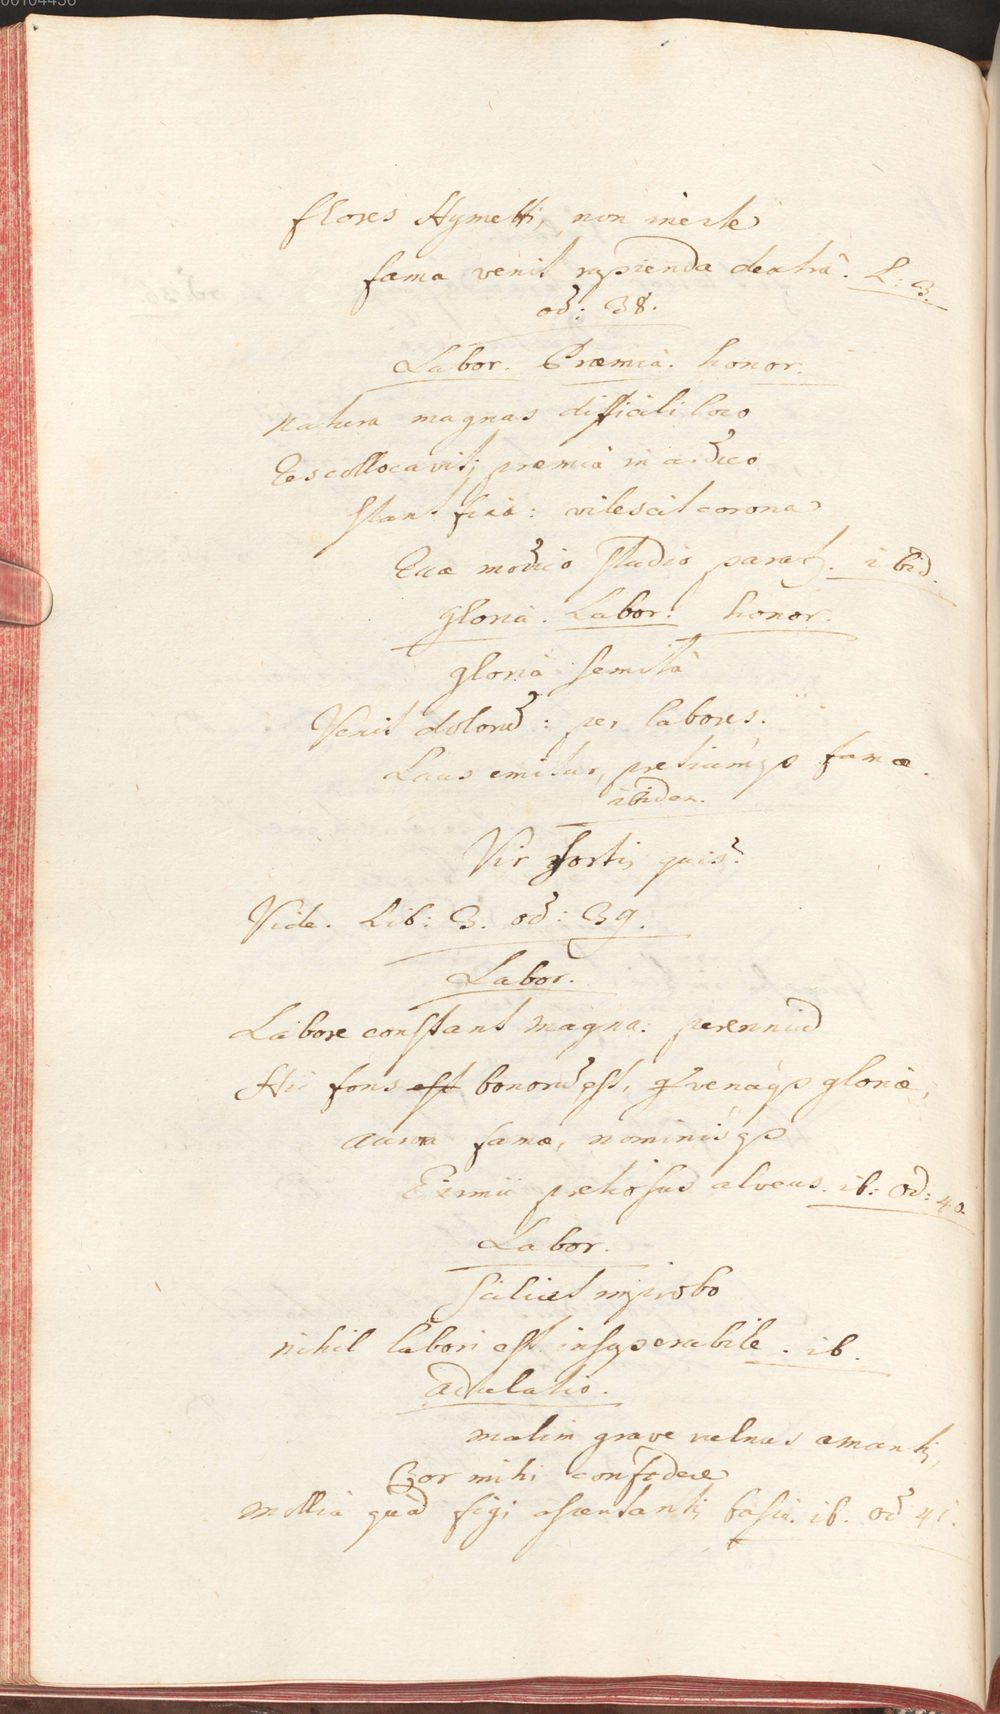 00104456
flores Hymetti, non inerte
fama venit rapienda dextrâ. L: 3.
od: 38.
Labor. Præmia. honor.
Natura magnas difficili loco
Res collocavit; præmia in arduo
stant fixa: vilescit corona
Quæ modico studio paratq. ibid.
gloria. Labor. honor.
gloria semitâ
Venit dolorũ: per labores.
Laus emitur, pretiumq3 famæ.
ibidem.
Vir fortis quis?
Vide. Lib: 3. od: 39.
Labor.
Labore constant magna: perenniũ
Hic fons est bonorũ est, venaq3 gloriæ,
aurea famæ, nominisq3
Eximii pretiosus alveus. ib: Od: 40
Labor.
scilicet improbo
nihil labori est insuperabile. ib.
adulatio.
malim grave vulnus amantis,
Cor mihi confodere
Mollia quã figi assentantis basia. ib. Od 41.